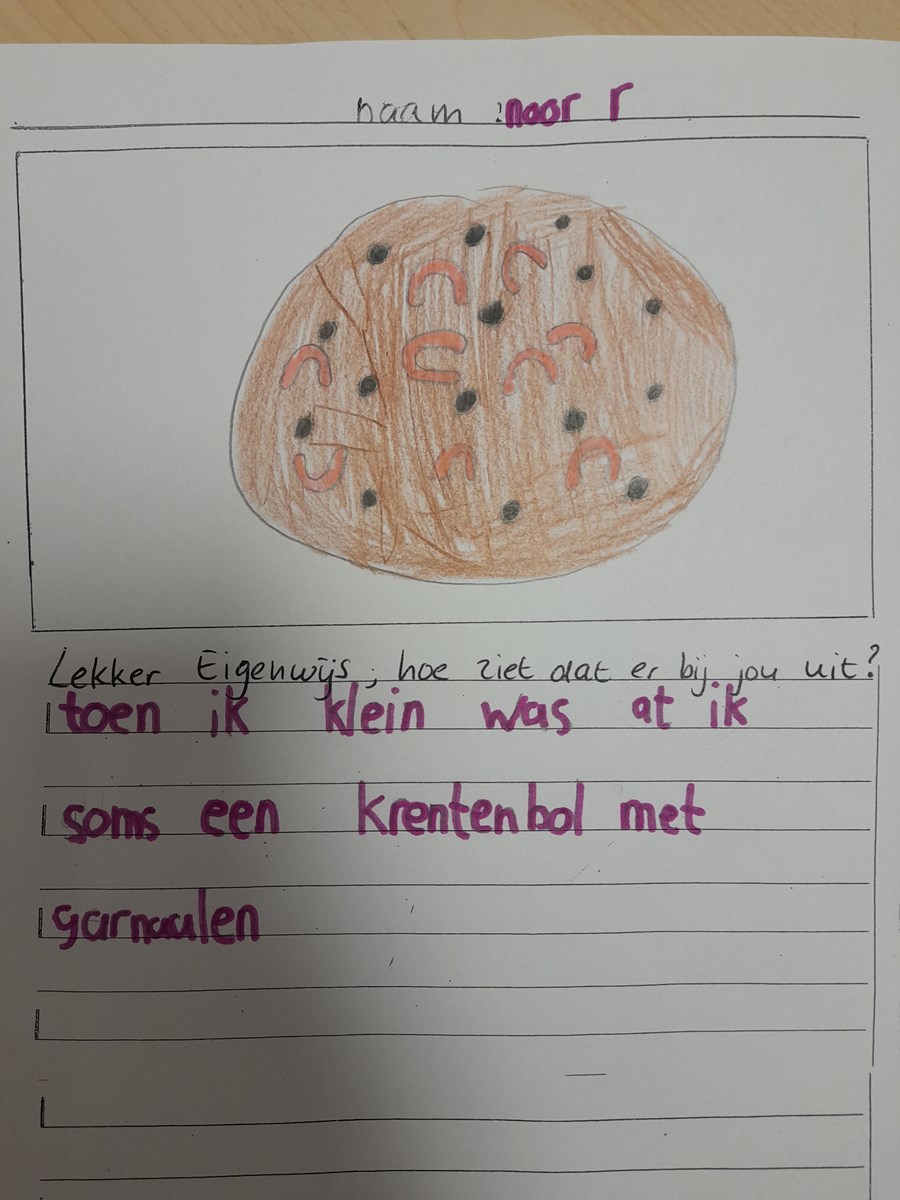 naam : noor r
Lekker Eigenwijs, hoe ziet dat er bij jou uit?
toen ik klein was at ik
soms een krentenbol met
garnaalen